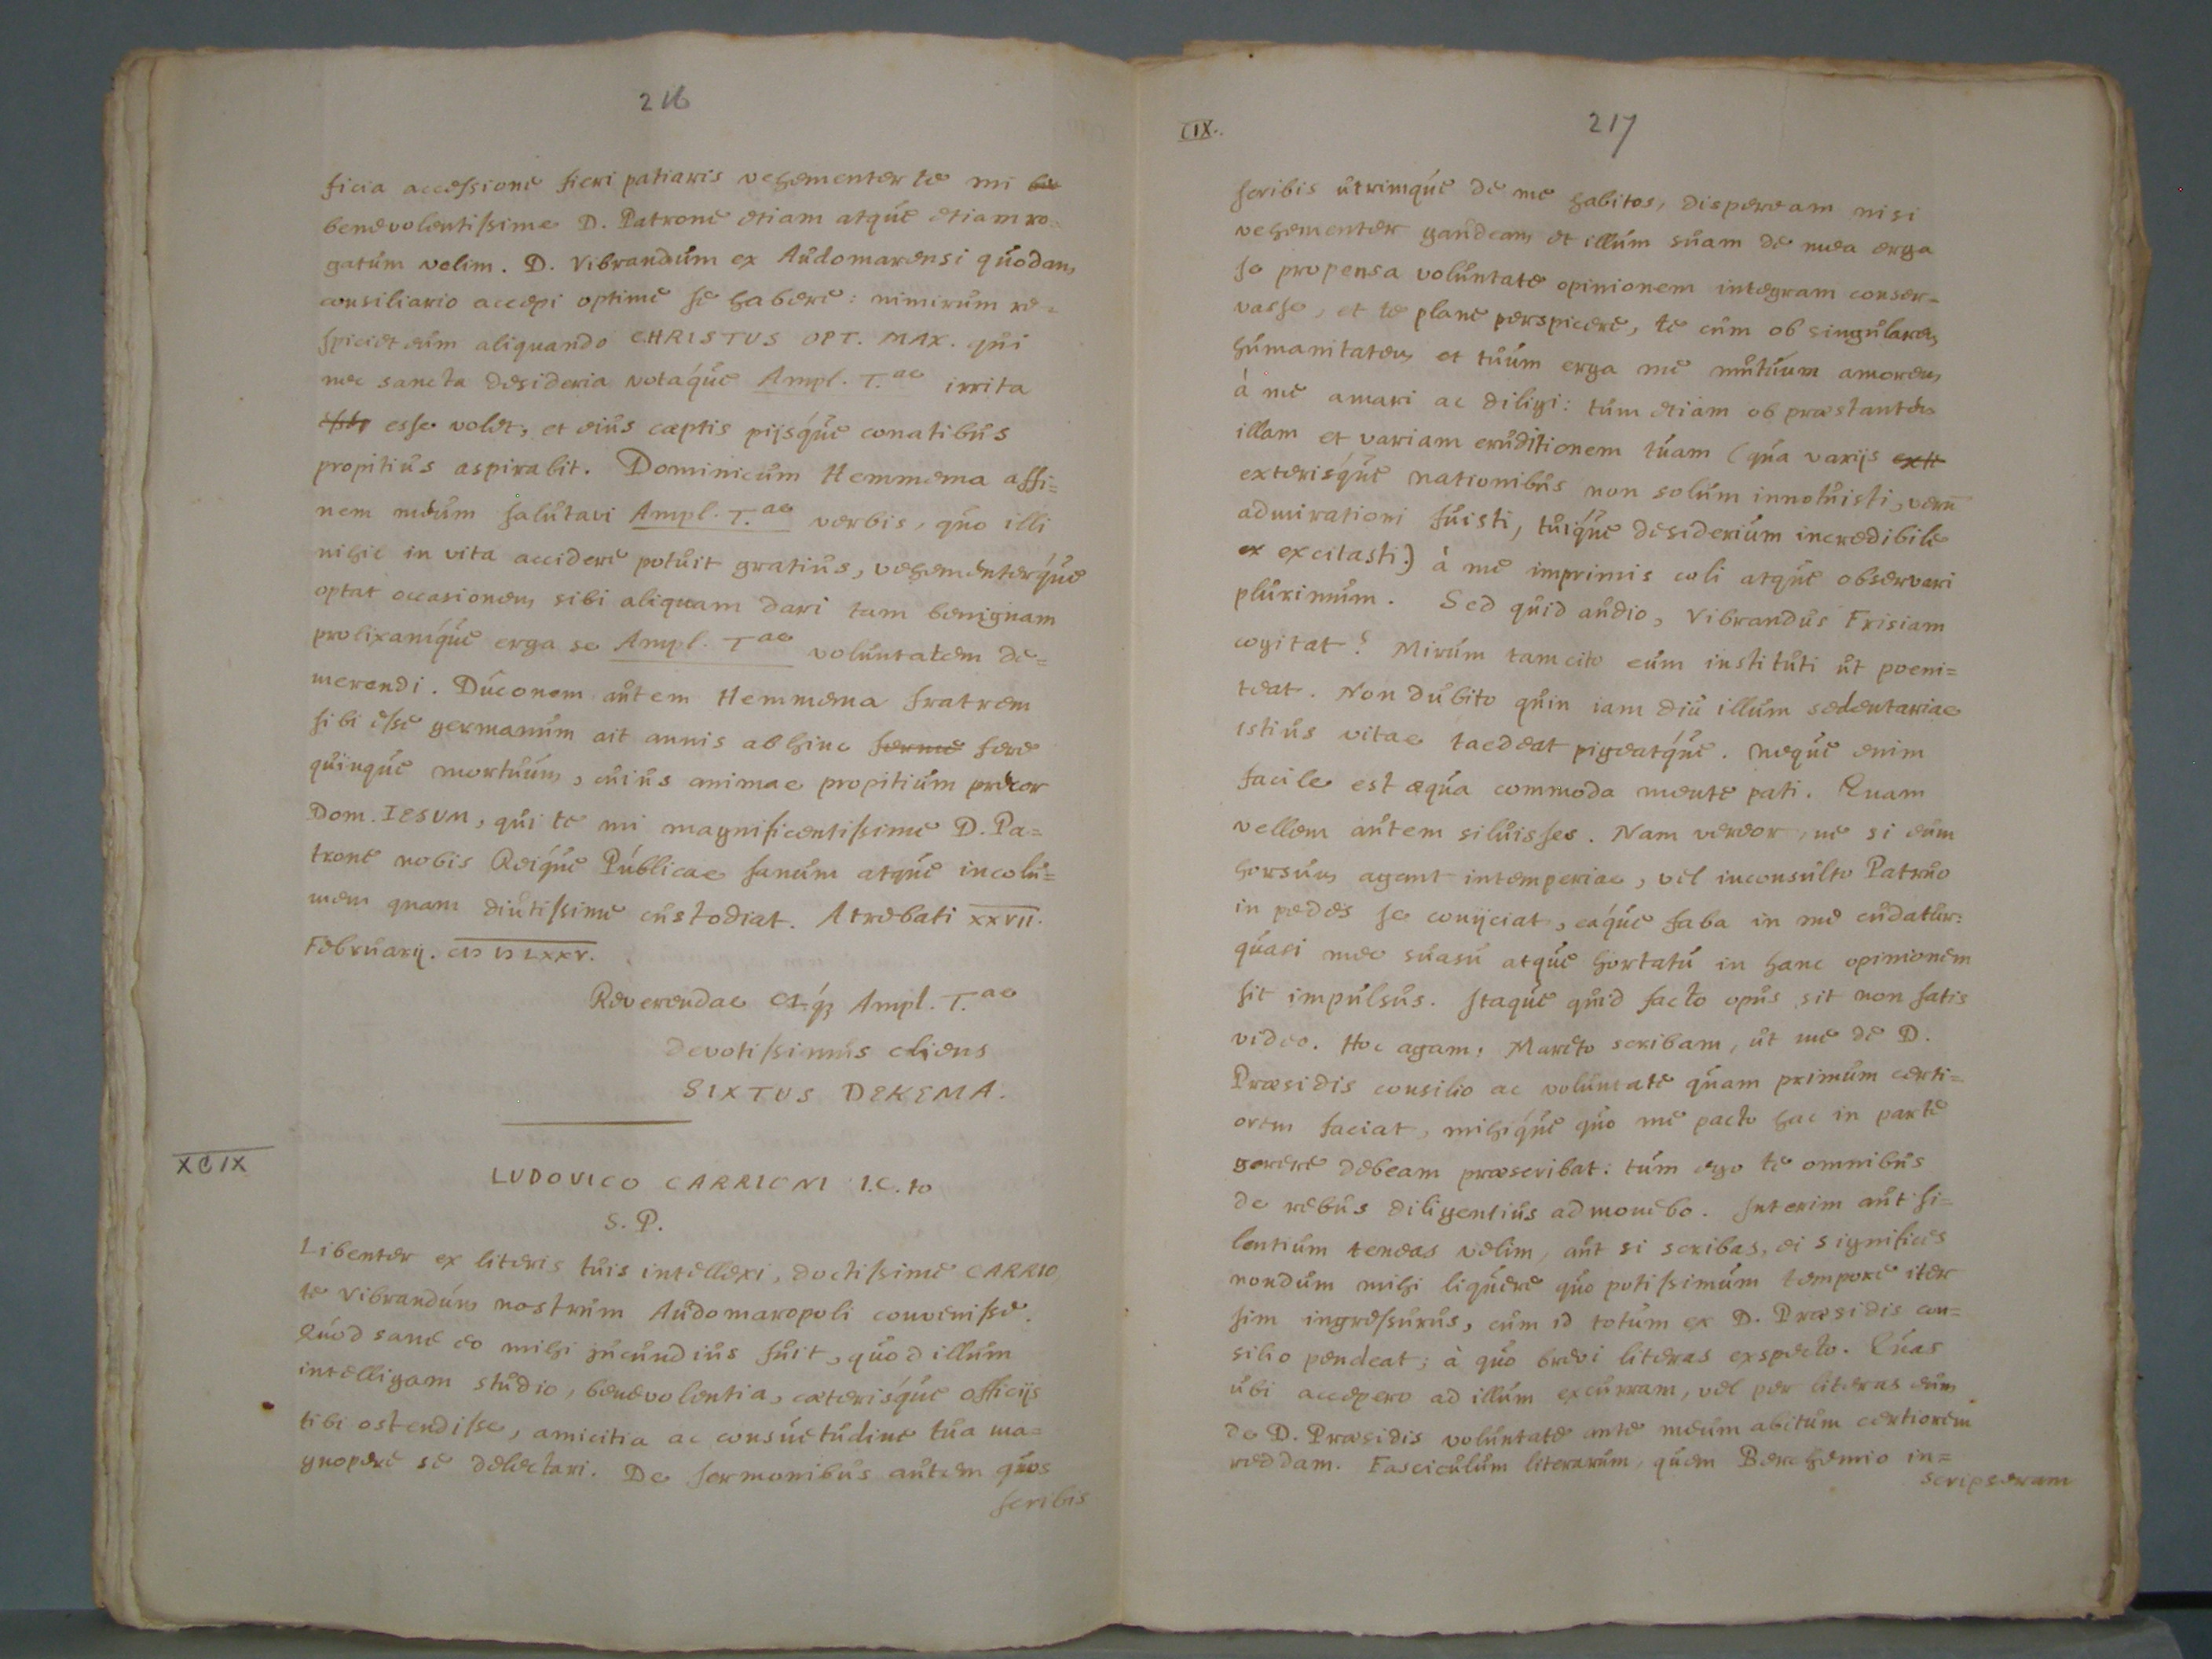 216
ficia accessione fieri patiaris vehementer te mi
benevolentissime D. Patrone etiam atque etiam ro-
gatum velim. D. Vibrandum ex Audomarensi quodam
consiliario accepi optime se habere: nimirum re-
spiciet eum aliquando CHRISTUS OPT. MAX. qui
nec sancta desideria votaque Ampl. T.ae irrita
esse volet, et eius cæptis pijsque conatibus
propitius aspirabit. Dominicum Hemmema affi=
nem meum salutavi Ampl. T.ae verbis, quo illi
nihil in vita accidere potuit gratius, vehementerque
optat occasionem sibi aliquam dari tam benignam
prolixamque erga se Ampl. Tae voluntatem de=
merendi. Duconem autem Hemmema fratrem
sibi esse germanum ait annis abhinc ferme fere
quinque mortuum, cuius animae propitium precor
Dom. IESUM, qui te mi magnificentissime D. Pa=
trone nobis Reique Publicae sanum atque incolu=
mem quam diutissime custodiat. Atrebati XXVII.
Februarij. CIↃ IↃ LXXV.
Reverendae et q; Ampl. T.ae
devotissimus cliens
SIXTUS DEKEMA.
XCIX
LUDOVICO CARRIONI I.C.to
S. P.
Libenter ex literis tuis intellexi, doctissime CARRIO,
te Vibrandum nostrum Audomaropoli convenisse.
Quod sane eo mihi jucundius fuit, quod illum
intelligam studio, benevolentia, cæterisque officijs
tibi ostendisse, amicitia ac consuetudine tua ma=
gnopere se delectari. De sermonibus autem quos
scribis
CIX.
217
scribis utrimque de me habitos, dispeream nisi
vehementer gaudeam et illum suam de mea erga
se propensa voluntate opinionem integram conser-
vasse, et te plane perspicere, te cum ob singularem
humanitatem et tuum erga me mutuum amorem
à me amari ac diligi: tum etiam ob præstantem
illam et variam eruditionem tuam (qua varijs exte
exterisque nationibus non solum innotuisti, verū
admirationi fuisti, tuique desiderium incredibile
ex excitasti) à me imprimis coli atque observari
plurimum. Sed quid audio, Vibrandus Frisiam
cogitat? Mirum tam cito eum instituti ut poeni=
teat. Non dubito quin iam diu illum sedentariae
istius vitae taedeat pigeatque. neque enim
facile est æqua commoda mente pati. Quam
vellem autem siluisses. Nam vereor, ne si eum
horsum agant intemperiae, vel inconsulto Patruo
in pedes se conijciat, eaque faba in me cudatur:
quasi meo suasu atque hortatu in hanc opinionem
sit impulsus. Itaque quid facto opus sit non satis
video. Hoc agam: Mareto scribam, ut me de D.
Præsidis consilio ac voluntate quam primum certi=
orem faciat, mihique quo me pacto hac in parte
gerere debeam præscribat: tum ego te omnibus
de rebus diligentius admonebo. Interim aut si=
lentium teneas velim, aut si scribas, ei significes
nondum mihi liquere quo potissimum tempore iter
sim ingressurus, cum id totum ex D. Præsidis con=
silio pendeat; à quo brevi literas exspecto. Quas
ubi accepero ad illum excurram, vel per literas eum
de D. Præsidis voluntate ante meum abitum certiorem
reddam. Fasciculum literarum, quem Berchemio in=
scripseram